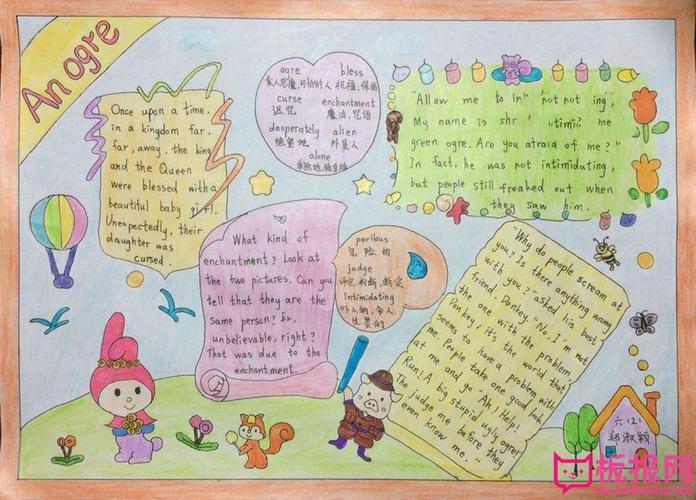 An ogre
Once upon a time,
in a kingdom far,
far, away, the king
and the Queen
were blessed with a
beautiful baby girl.
Unexpectedly, their
daughter was
cursed.
ogre bless
食人恶魔,可怕的人 祝福,保佑
curse enchantment
诅咒 魔法,咒语
desperately alien
绝望地 外星人
alone
单独地,独自地
"Allow me to in
My name is
green ogre. Are you afraid of me?"
In fact, he was not intimidating,
but people still freaked out when
they saw him.
What kind of
enchantment? Look at
the two pictures. Can you
tell that they are the
same person?
unbelievable, right?
That was due to the
enchantment.
perilous
危险的
judge
评定,判断,断定
intimidating
吓人的,令人
生畏的
"Why do people scream at
you? Is there anything wrong
with you?" asked his best
friend, Donkey. "No, I'm not
the one with the problem,
Donkey, it's the world that
seems to have a problem with
me. People take one good look
at me and go 'Ah! Help!
Run! A big stupid ugly ogre!'
The judge me before they
even know me."
六(2)
郑淑颖
板报网